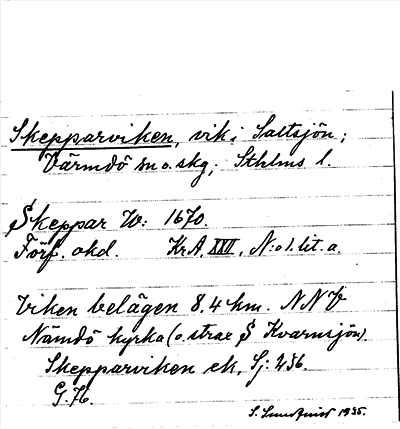 Skepparviken, vik i Saltsjön;
Värmdö sn o. skg; Sthlms l.
Skeppar W: 1670.
Förf. okd. KrA, XXVI, N:o 1. lit. a.
Viken belägen 8,4 km. NNV
Nämdö kyrka (o. strax S Kvarnsjön).
Skepparviken ek, Sj: 256.
G. 76
S. Sundqvist 1935.